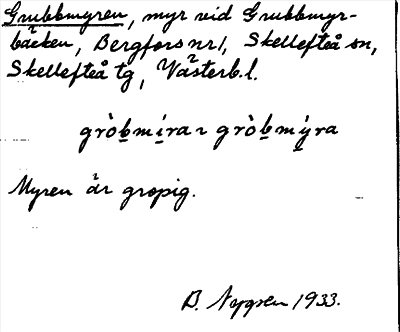 Grubbmyren, myr vid Grubbmyr-
bäcken, Bergfors nr 1, Skellefteå sn,
Skellefteå tg, Västerb. l.
gròb̲mi̲ra ~ gròb̲mý̲ra
Myren är gropig.
B. Nygren 1933.